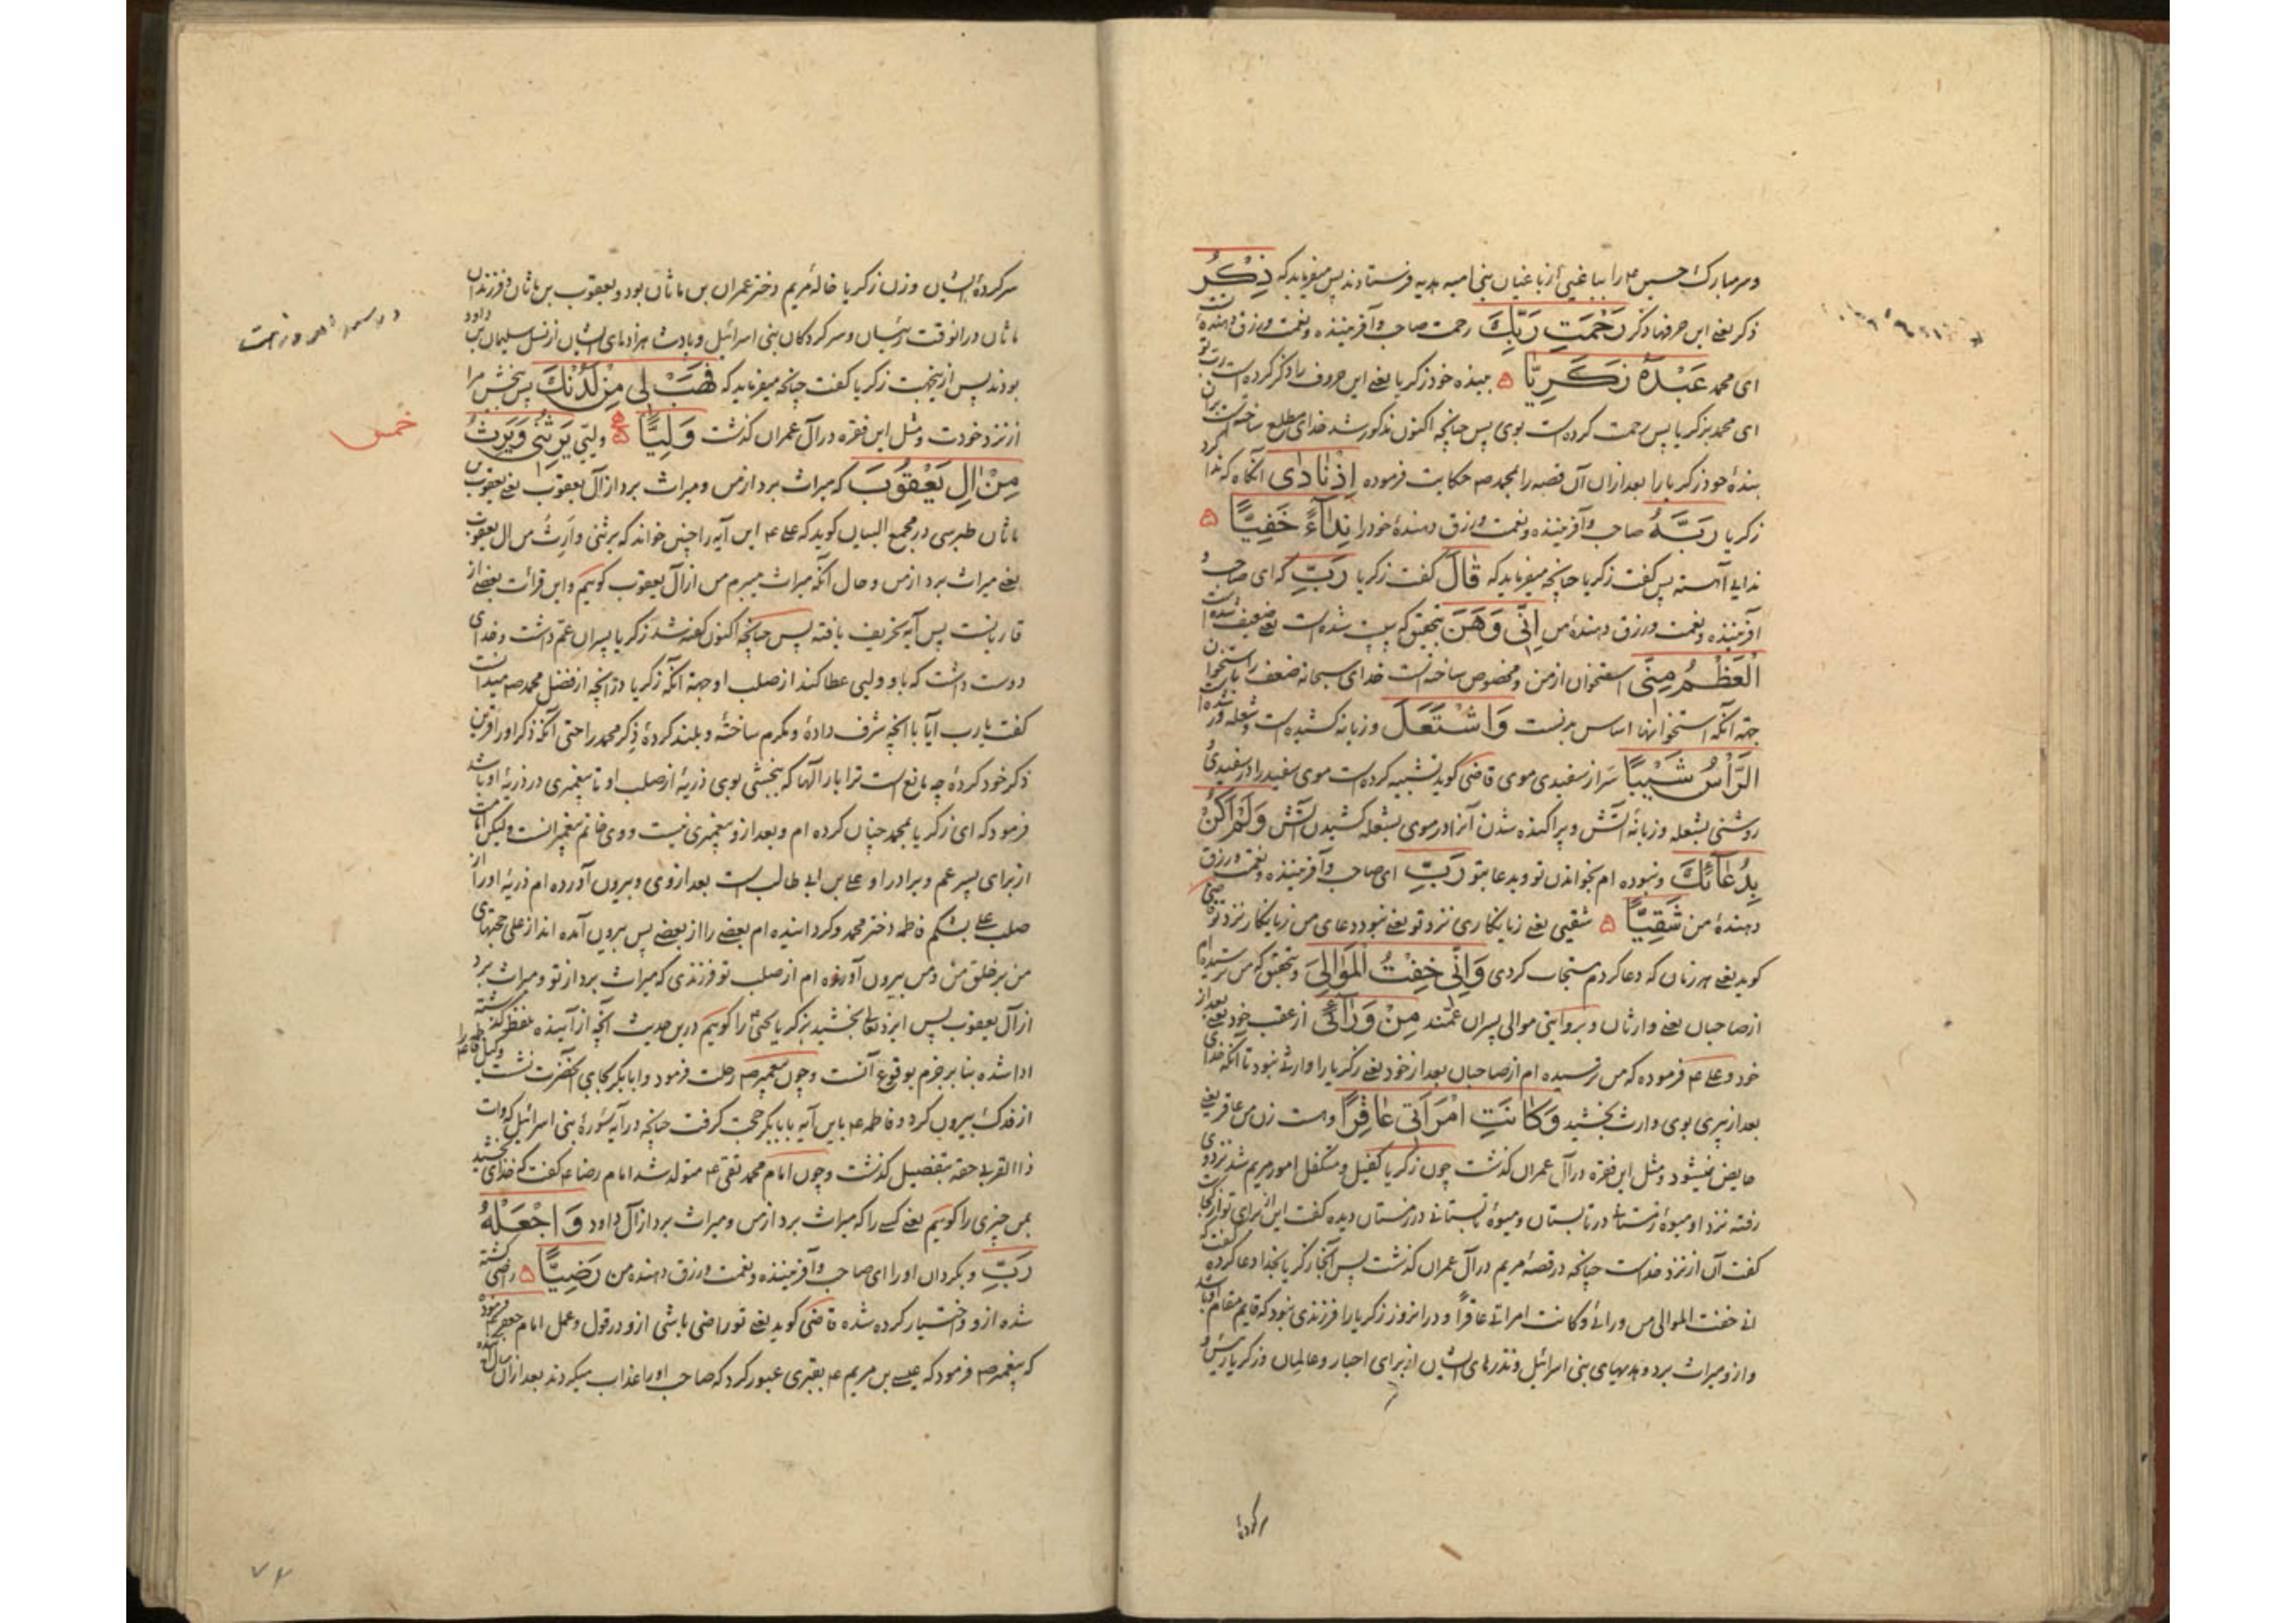 وسر مبارک حسین ع را بباغیی از باغیان بنی امیه هدیه فرستادند پس میفرماید که ذِکْرُ
ذکر یعنی این حرفها ذکر رَحْمَتِ رَبِّكَ رحمت صاحب و آفریننده و نعمت و رزق دهندهٔ تست
ای محمد عَبْدَهُ زَكَرِيَّا ۵ بنده خود زکریا یعنی این حروف را ذکر کرده است رب تو
ای محمد بزکریا پس رحمت کرده است بوی پس چنانچه اکنون مذکور شد خدای مطلع ساخته است بران
بندهٔ خود زکریا را بعد ازان آن قصه را بمحمد صم حکایت فرموده اِذْ نَادٰی آنگاه که ندا کرد
زکریا رَبَّهُ صاحب و آفریننده و نعمت و رزق دهندهٔ خود را نِدَآءً خَفِيًّا ۵
ندایی آهسته پس گفت زکریا چنانچه میفرماید که قَالَ گفت زکریا رَبِّ که ای صاحب و
آفریننده و نعمت و رزق دهندهٔ من اِنِّی وَهَنَ بتحقیق که سست شده است یعنی ضعیف شده است
الْعَظْمُ مِنِّی استخوان از من و مخصوص ساخته است خدای سبحانه ضعف را باستخوان
جهة آنکه استخوانها اساس بدنست وَاشْتَعَلَ و زبانه کشیده است و شعله ور شده است
الرَّأْسُ شَيْبًا سر از سفیدی موی قاضی گوید تشبیه کرده است موی سفید را در سفیدی و
روشنی بشعله و زبانهٔ آتش و پراکنده شدن آنرا در موی بشعله کشیدن آتش وَلَمْ اَكُنْ
بِدُعَآئِكَ و نبوده ام بخواندن تو و بدعا بتو رَبِّ ای صاحب و آفریننده و نعمت و رزق
دهندهٔ من شَقِيًّا ۵ شقیی یعنی زیانکاری نزد تو یعنی نبود دعای من زیانکار نزد تو قاضی
گوید یعنی هر زمان که دعا کردم مستجاب کردی وَاِنِّی خِفْتُ الْمَوَالِیَ و بتحقیق که من ترسیده ام
از صاحبان یعنی وارثان و بروایتی موالی پسران عمند مِنْ وَرَآئِی از عقب خود یعنی بعد از
خود و علی ع فرموده که من ترسیده ام از صاحبان بعد از خود یعنی زکریا را وارثی نبود تا آنکه خدای
بعد از پیری بوی وارث بخشید وَكَانَتِ امْرَاَتِی عَاقِرًا و هست زن من عاقر یعنی
حایض نمیشود و مثل این فقره در آل عمران گذشت چون زکریا کفیل و متکفل امور مریم شد نزد وی
رفته نزد او میوهٔ زمستانی در تابستان و میوهٔ تابستانی در زمستان دیده گفت این از برای تو از کجاست
گفت آن از نزد خداست چنانچه در قصهٔ مریم در آل عمران گذشت پس آنجا زکریا بخدا دعا کرده گفت که
انی خفت الموالی من ورائی و کانت امراتی عاقرا و در انروز زکریا را فرزندی نبود که قایم مقام او باشد
و ازو میراث برد و هدیهای بنی اسرائیل و نذرهای ایشان از برای احبار و عالمان و زکریا رئیس و
سرکردهٔ
سرکردهٔ ایشان و زن زکریا خالهٔ مریم دختر عمران بن ماثان بود و یعقوب بن ماثان و فرزندان
ماثان در انوقت رئیسان و سرکردگان بنی اسرائیل و پادشاهزادهای ایشان از نسل سلیمان بن داود
بودند پس ازینجهت زکریا گفت چنانچه میفرماید که فَهَبْ لِی مِنْ لَدُنْكَ پس ببخش مرا
خمس
از نزد خودت و مثل این فقره در آل عمران گذشت وَلِيًّا ۵ ولیی يَرِثُنِی وَيَرِثُ
مِنْ اٰلِ يَعْقُوبَ که میراث برد از من و میراث برد از آل یعقوب یعنی یعقوب بن
ماثان طبرسی در مجمع البیان گوید که علی ع این آیه را چنین خواند که یرثنی وارث من ال یعقوب
یعنی میراث برد از من و حال آنکه میراث میبرم من از آل یعقوب گوئیم و این قرائت بعضی از
قاریانست پس آیه تحریف یافته پس چنانچه اکنون گفته شد زکریا پسران عم داشت و خدای
دوست داشت که باو ولیی عطا کند از صلب او جهة آنکه زکریا در آنچه از فضل محمد صم میدانست
گفت یارب آیا با آنچه شرف دادهٔ و مکرم ساختهٔ و بلند کردهٔ ذکر محمد را حتی آنکه ذکر او را قرین
ذکر خود کردهٔ چه مانع است ترا بار الها که ببخشی بوی ذریهٔ از صلب او تا پیغمبری در ذریهٔ او باشد
فرمود که ای زکریا بمحمد چنان کرده ام و بعد ازو پیغمبری نیست و وی خاتم پیغمبرانست ولیکن امامت
از برای پسر عم و برادر او علی بن ابی طالب است بعد از وی و بیرون آورده ام ذریهٔ او را از
صلب علی بشکم فاطمه دختر محمد و گردانیده ام بعضی را از بعضی پس بیرون آمده اند از علی حجتهای
من بر خلق من و من بیرون آورنده ام از صلب تو فرزندی که میراث برد از تو و میراث برد
از آل یعقوب پس ایزد تعالی بخشید بزکریا یحیی ع را گوئیم درین حدیث آنچه از آینده بلفظ گذشته
ادا شده بنا بر جزم بوقوع آنست و چون پیغمبر صم رحلت فرمود و ابابکر بجای آنحضرت نشست وکیل فاطمه ع را
از فدک بیرون کرد و فاطمه ع باین آیه بابابکر حجت گرفت چنانچه در آیه سورهٔ بنی اسرائیل که وات
ذا القربی حقه بتفصیل گذشت و چون امام محمد تقی ع متولد شد امام رضا ع گفت که خدای بخشید
بمن چیزی را گوئیم یعنی کسی را که میراث برد از من و میراث برد از آل داود وَاجْعَلْهُ
رَبِّ و بگردان او را ای صاحب و آفریننده و نعمت و رزق دهنده من رَضِيًّا ۵ راضی گشته
شده ازو و اختیار کرده شده قاضی گوید یعنی تو راضی باشی ازو در قول و عمل امام جعفر ع فرمود
که پیغمبر صم فرمود که عیسی بن مریم ع بقبری عبور کرد که صاحب او را عذاب میکردند بعد ازان